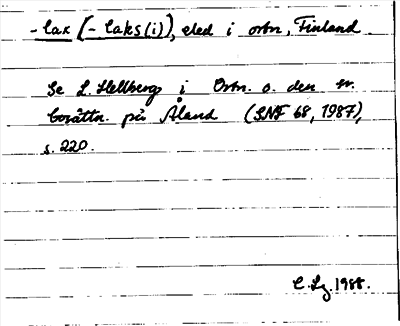 -lax (-laks(i)), eled i ortn, Finland
Se L. Hellberg i Ortn. o. den sv.
bosättn. på Åland (SNF 68, 1987),
s. 220.
C. Lg. 1988.